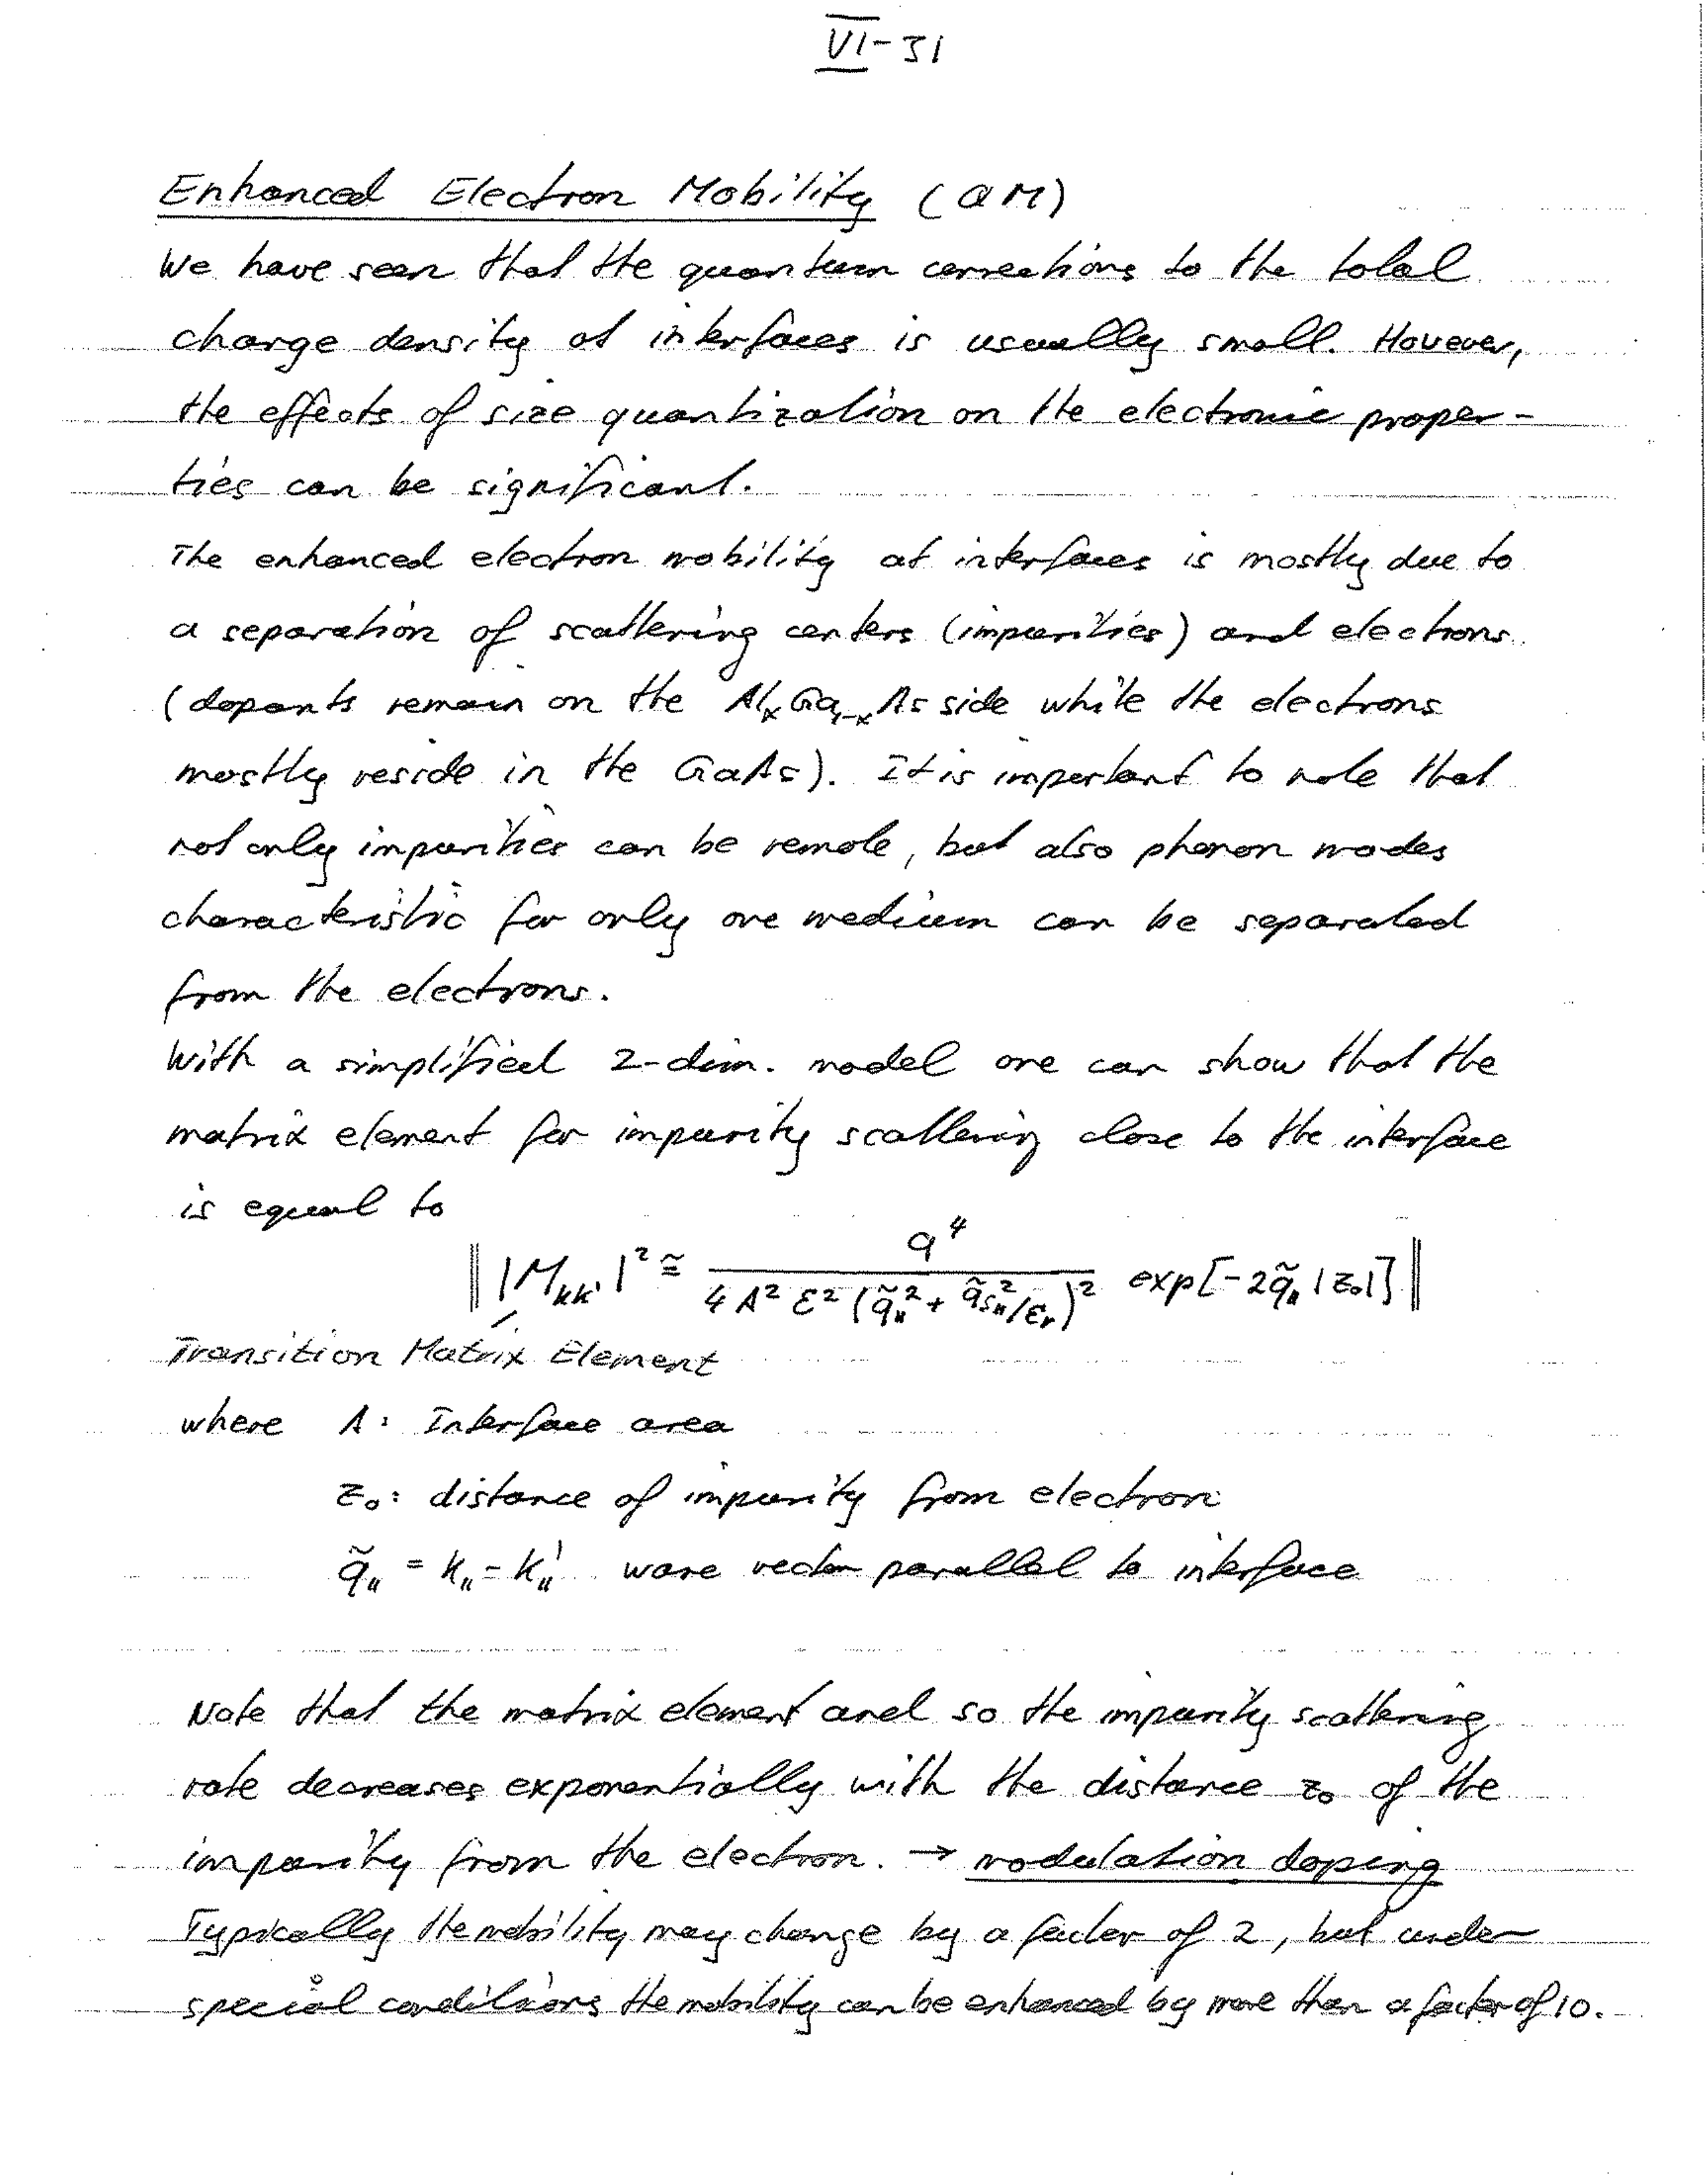 VI-31
Enhanced Electron Mobility (QM)
We have seen that the quantum corrections to the total
charge density at interfaces is usually small. However,
the effects of size quantization on the electronic proper-
ties can be significant.
The enhanced electron mobility at interfaces is mostly due to
a separation of scattering centers (impurities) and electrons
(dopants remain on the AlₓGa₁₋ₓAs side while the electrons
mostly reside in the GaAs). It is important to note that
not only impurities can be remote, but also phonon modes
characteristic for only one medium can be separated
from the electrons.
With a simplified 2-dim. model one can show that the
matrix element for impurity scattering close to the interface
is equal to
‖ |M_kk'|² ≅ q⁴ / (4 A² ε² (q̃_∥² + q̃_s∥²/ε_r)²) exp[-2q̃_∥ |z₀|] ‖
Transition Matrix Element
where A: Interface area
z₀: distance of impurity from electron
q̃_∥ = k_∥ - k_∥' wave vector parallel to interface
Note that the matrix element and so the impurity scattering
rate decreases exponentially with the distance z₀ of the
impurity from the electron. → modulation doping
Typically the mobility may change by a factor of 2, but under
special conditions the mobility can be enhanced by more than a factor of 10.